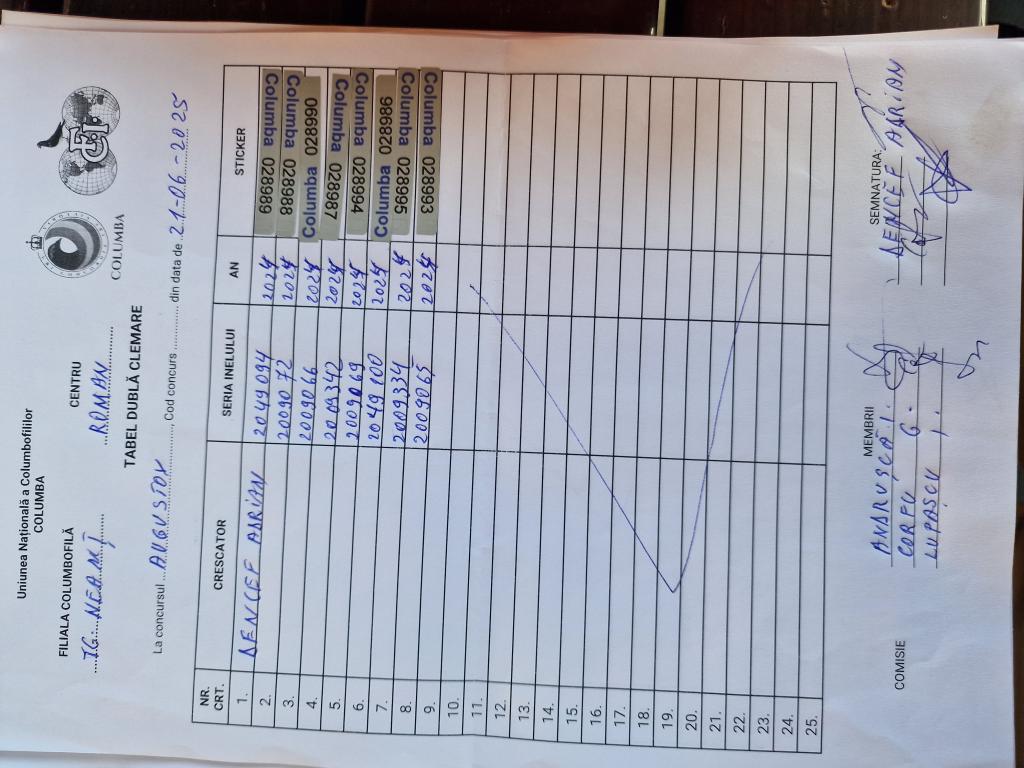 Uniunea Națională a Columbofililor
COLUMBA
FILIALA COLUMBOFILĂ CENTRU
TG. NEAMȚ ROMAN
COLUMBA
TABEL DUBLĂ CLEMARE
La concursul AUGUSTOW, Cod concurs din data de 21-06-2025
NR. CRT. CRESCATOR SERIA INELULUI AN STICKER
1. DENCEF ADRIAN
2. 2049094 2024 Columba 028989
3. 2009072 2024 Columba 028988
4. 2009066 2024 Columba 028990
5. 2009342 2024 Columba 028987
6. 2009069 2024 Columba 028994
7. 2049100 2024 Columba 028986
8. 2009334 2024 Columba 028995
9. 2009065 2024 Columba 028993
10.
11.
12.
13.
14.
15.
16.
17.
18.
19.
20.
21.
22.
23.
24.
25.
COMISIE MEMBRII SEMNATURA:
ANDRUSCĂ I. DENCEF ADRIAN
CORFU G.
LUPAȘCU I.